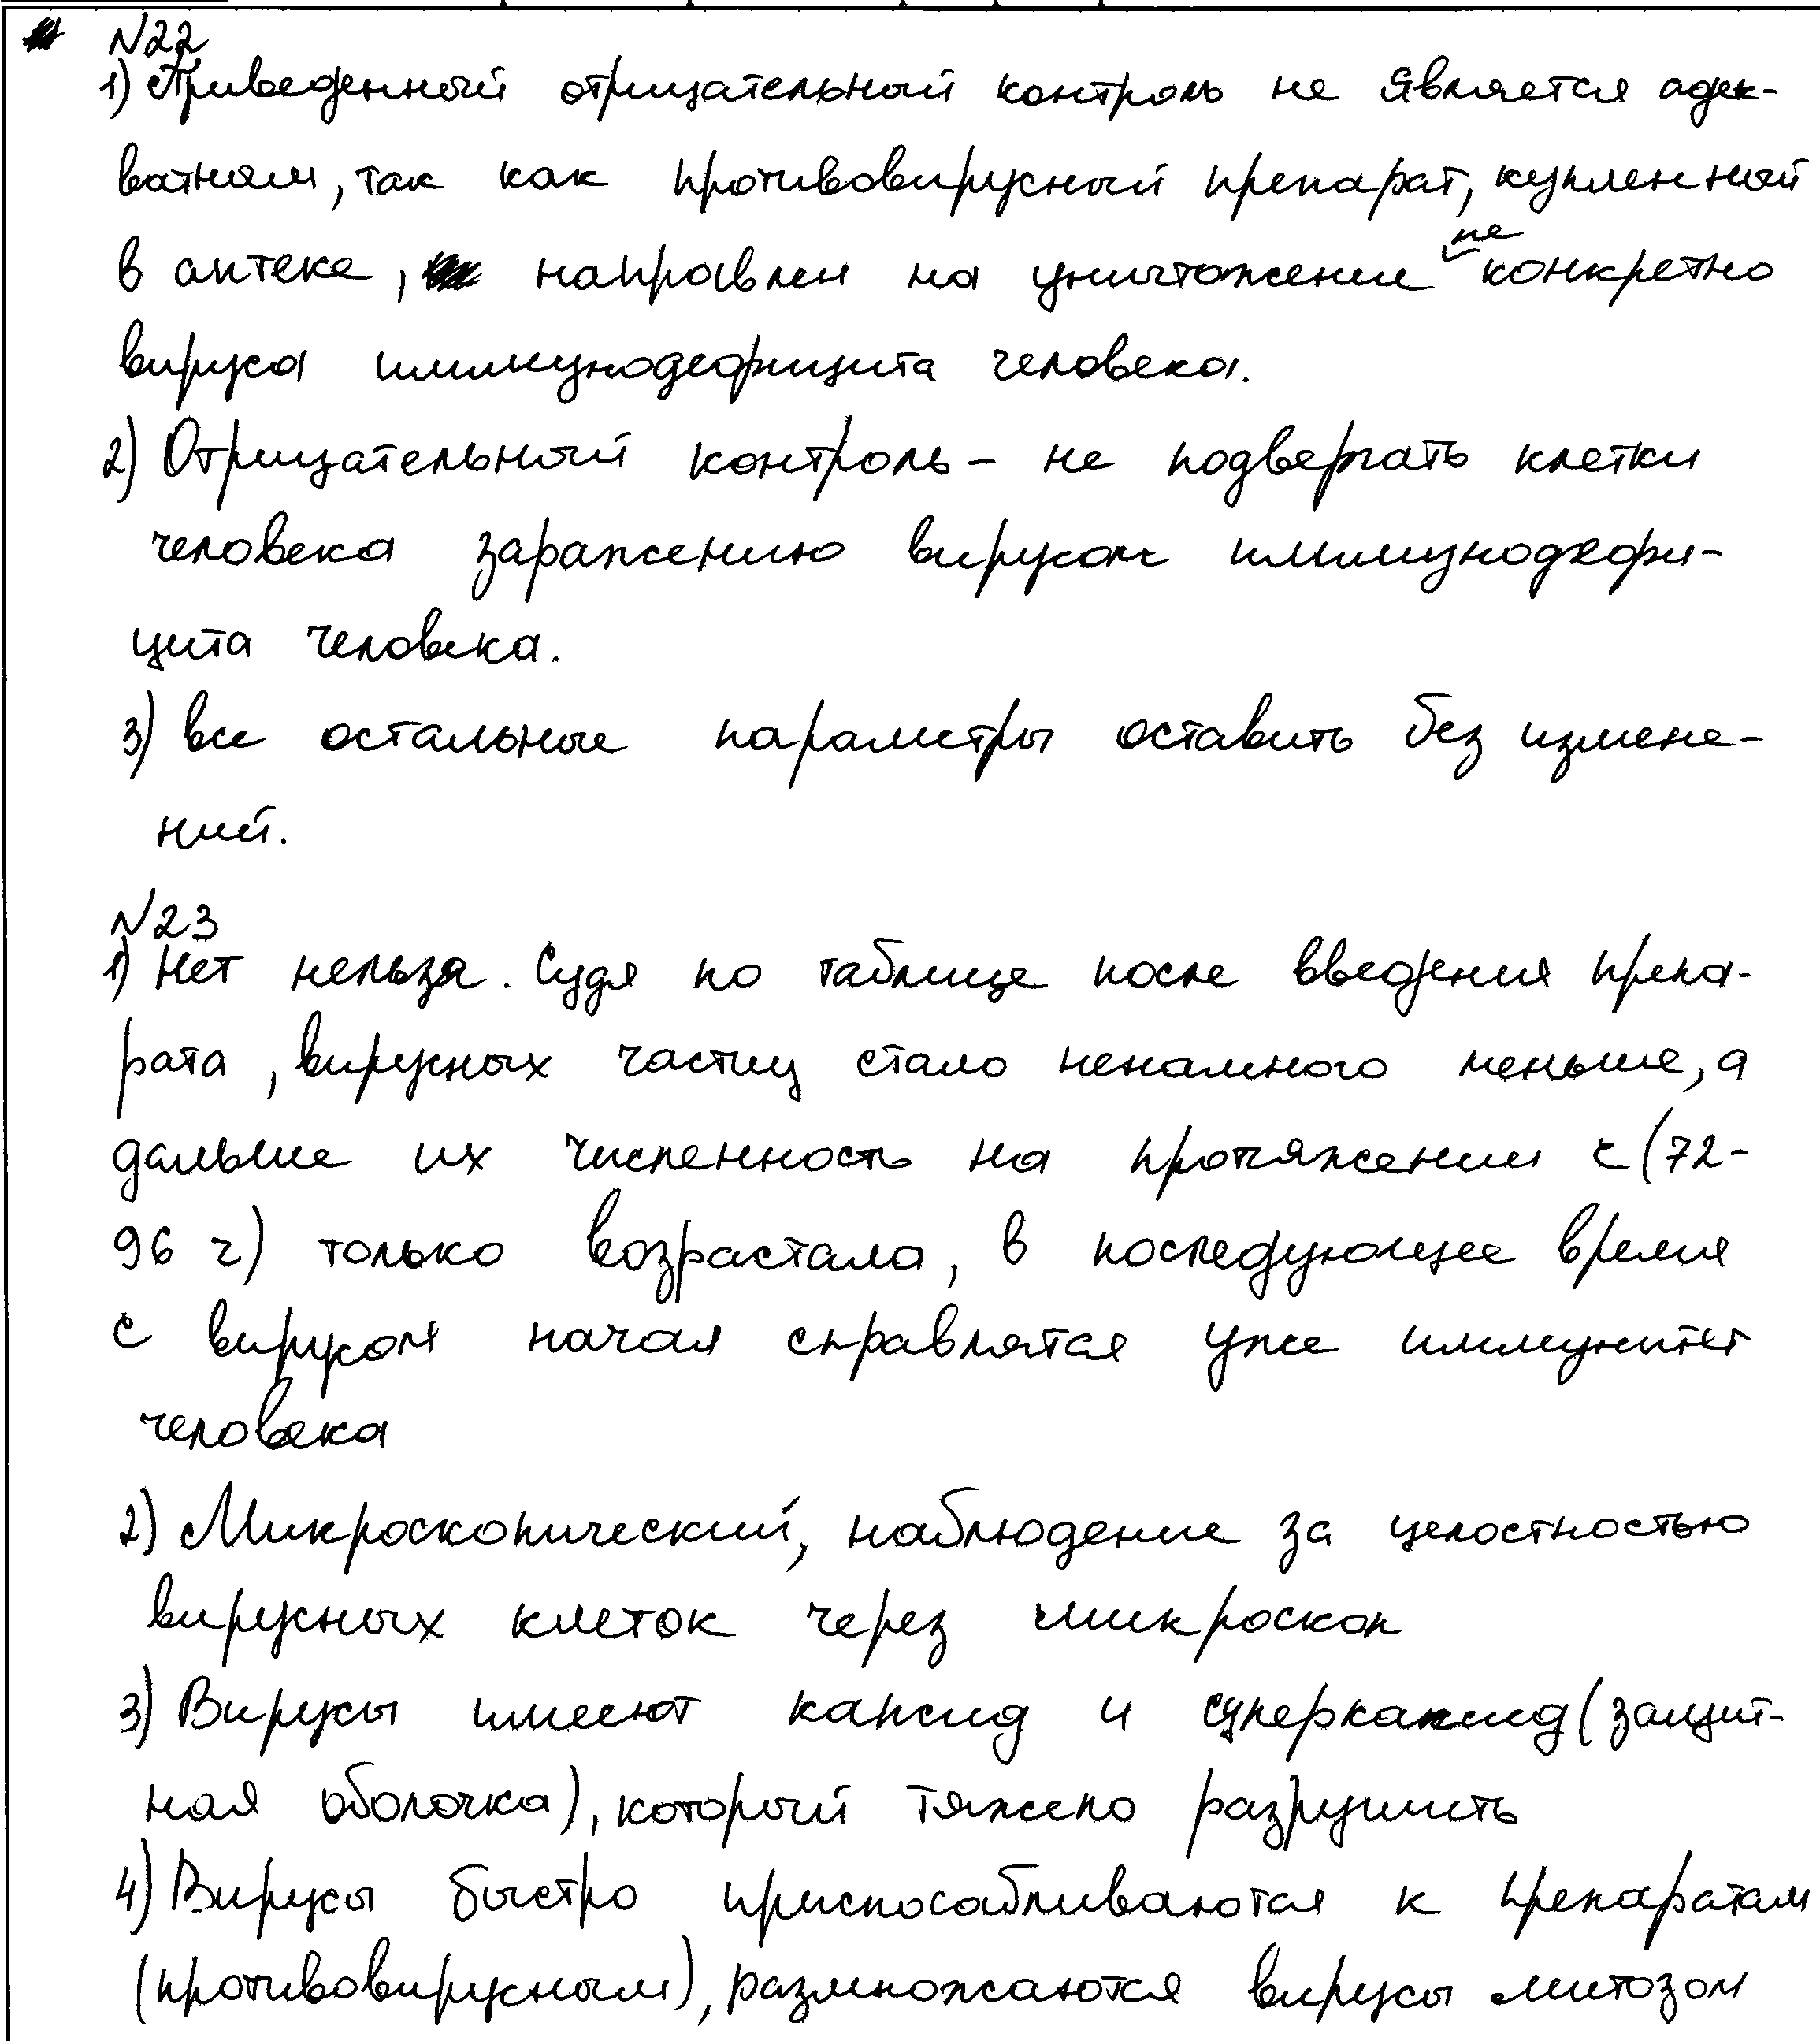 №22
1) Приведенный отрицательный контроль не является адек-
ватным, так как противовирусный препарат, купленный
в аптеке, направлен на уничтожение не конкретно
вируса иммунодефицита человека.
2) Отрицательный контроль - не подвергать клетки
человека заражению вирусом иммунодефи-
цита человека.
3) все остальные параметры оставить без измене-
ний.
№23
1) Нет нельзя. Судя по таблице после введения препа-
рата, вирусных частиц стало ненамного меньше, а
дальше их численность на протяжении с (72-
96 ч) только возрастала, в последующее время
с вирусом начал справлятся уже иммунитет
человека
2) Микроскопический, наблюдение за целостностью
вирусных клеток через микроскоп
3) Вирусы имеют капсид и суперкапсид (защит-
ная оболочка), который тяжело разрушить
4) Вирусы быстро приспосабливаются к препаратам
(противовирусным), размножаются вирусы митозом